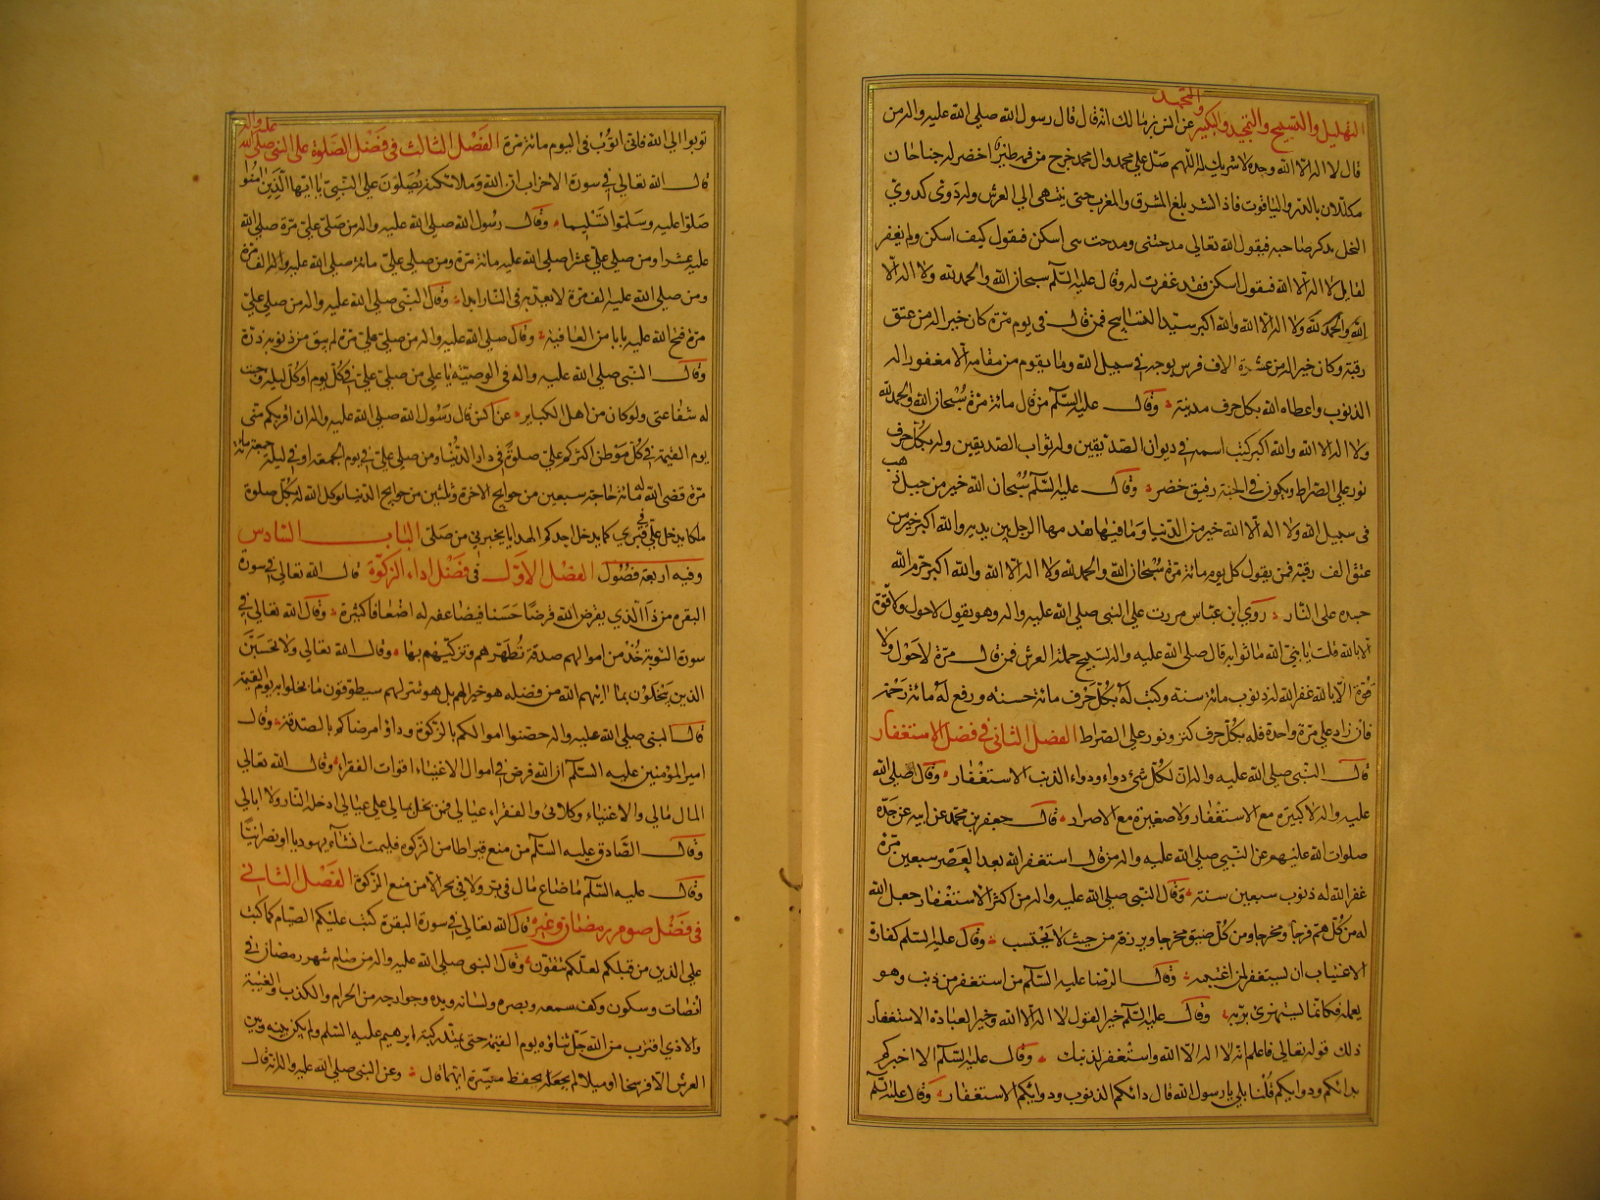 التهليل والتسبيح والتمجيد والتكبير والتحميد عن انس بن مالك انه قال قال رسول الله صلى الله عليه واله من
قال لا اله الا الله وحده لا شريك له اللهم صل على محمد وال محمد خرج من فمه طير اخضر له جناحان
مكللان بالدر والياقوت فاذا نشر بلغ المشرق والمغرب حتى ينتهى الى العرش وله دوى كدوى
النحل يذكر صاحبه فيقول الله تعالى مدحتنى ومدحت اسكن فيقول كيف اسكن ولم يغفر
لقايل لا اله الا الله فيقول اسكن فقد غفرت له وقال عليه السلم سبحان الله والحمد لله ولا اله الا
الله والحمد لله ولا اله الا الله والله اكبر سيد التسابيح فمن قال فى يوم مرة كان خيرا له من عتق
رقبة وكان خير له من عشرة الاف فرس يوجه فى سبيل الله وما يقوم من مقامه الا مغفورا له
الذنوب واعطاه الله بكل حرف مدينة وقال عليه السلم من قال مائة مرة سبحان الله والحمد لله
ولا اله الا الله والله اكبر كتب اسمه فى ديوان الصديقين وله ثواب الصديقين وله بكل حرف
نور على الصراط ويكون فى الجنة رفيق خضر وقال عليه السلم سبحان الله خير من جبل ذهب
فى سبيل الله ولا اله الا الله خير من الدنيا وما فيها يقدمها الرجل بين يديه والله اكبر خير من
عتق الف رقبة فمن يقول كل يوم مائة مرة سبحان الله والحمد لله ولا اله الا الله والله اكبر حرم الله
جسده على النار روى ابن عباس مررت على النبى صلى الله عليه واله وهو يقول لا حول ولا قوة
الا بالله قلت يا نبى الله ما ثوابه قال صلى الله عليه واله تسبيح حملة العرش فمن قال مرة لا حول ولا
قوة الا بالله غفر الله له ذنوب مائة سنة وكتب له بكل حرف مائة حسنة ورفع له مائة درجة
فان زاد على مرة واحدة فله بكل حرف كنز ونور على الصراط الفصل الثانى فى فضل الاستغفار
قال النبى صلى الله عليه واله ان لكل شئ دواء ودواء الذنب الاستغفار وقال صلى الله
عليه واله لا كبيرة مع الاستغفار ولا صغيرة مع الاصرار قال جعفر بن محمد عن ابيه عن جده
صلوات الله عليهم عن النبى صلى الله عليه واله من قال استغفر الله بعد العصر سبعين مرة
غفر الله له ذنوب سبعين سنة وقال النبى صلى الله عليه واله من اكثر الاستغفار جعل الله
له من كل هم فرجا ومخرجا ومن كل ضيق مخرجا ويرزقه من حيث لا يحتسب وقال عليه السلم كفارة
الاغتياب ان يستغفر لمن اغتبته وقال الرضا عليه السلم من استغفر من ذنب وهو
يعمله فكانما يستهزئ بربه وقال عليه السلم خير القول لا اله الا الله وخير العبادة الاستغفار
ذلك قوله تعالى فاعلم انه لا اله الا الله واستغفر لذنبك وقال عليه السلم الا اخبركم
بدائكم ودوايكم قلنا بلى يا رسول الله قال دائكم الذنوب ودوايكم الاستغفار وقال عليه السلم
توبوا الى الله فانى اتوب فى اليوم مائة مرة الفصل الثالث فى فضل الصلوة على النبى صلى الله عليه واله
قال الله تعالى فى سورة الاحزاب ان الله وملائكته يصلون على النبى يا ايها الذين امنوا
صلوا عليه وسلموا تسليما وقال رسول الله صلى الله عليه واله من صلى على مرة صلى الله
عليه عشرا ومن صلى على عشرا صلى الله عليه مائة مرة ومن صلى على مائة صلى الله عليه الف مرة
ومن صلى الله عليه الف مرة لا يعذبه فى النار ابدا وقال النبى صلى الله عليه واله من صلى على
مرة فتح الله عليه بابا من العافية وقال صلى الله عليه واله من صلى على مرة لم يبق من ذنوبه ذرة
وقال النبى صلى الله عليه واله فى الوصية يا على من صلى على فى كل يوم او كل ليلة وجبت
له شفاعتى ولو كان من اهل الكباير عن انس قال رسول الله صلى الله عليه واله ان اقربكم منى
يوم القيمة فى كل موطن اكثركم على صلوة فى دار الدنيا ومن صلى على فى يوم الجمعة او فى ليلة جمعة مائة
مرة قضى الله له مائة حاجة سبعين من حوايج الاخرة وثلثين من حوايج الدنيا ويوكل الله له بكل صلوة
ملكا يدخل على فى قبرى كما يدخل احدكم الهدايا يخبرنى من صلى الباب السادس
وفيه اربعة فصول الفصل الاول فى فضل اداء الزكوة قال الله تعالى فى سورة
البقره من ذا الذى يقرض الله قرضا حسنا فيضاعفه له اضعافا كثيرة وقال الله تعالى فى
سورة التوبة خذ من اموالهم صدقة تطهرهم وتزكيهم بها وقال الله تعالى ولا تحسبن
الذين يبخلون بما اتيهم الله من فضله هو خيرا لهم بل هو شر لهم سيطوقون ما بخلوا به يوم القيمة
قال النبى صلى الله عليه واله حصنوا اموالكم بالزكوة وداؤوا مرضاكم بالصدقة وقال
امير المؤمنين عليه السلم ان الله فرض فى اموال الاغنياء اقوات الفقراء وقال الله تعالى
المال مالى والاغنياء وكلائى والفقراء عيالى فمن بخل بمالى على عيالى ادخله النار ولا ابالى
وقال الصادق عليه السلم من منع قيراطا من الزكوة فليمت انشاء يهوديا او نصرانيا
وقال عليه السلم ما ضاع مال فى بر ولا فى بحر الا من منع الزكوة الفصل الثانى
فى فضل صوم رمضان وغيره قال الله تعالى فى سورة البقرة كتب عليكم الصيام كما كتب
على الذين من قبلكم لعلكم تتقون وقال النبى صلى الله عليه واله من صام شهر رمضان فى
انصات وسكون وكف سمعه وبصره ولسانه ويده وجوارحه من الحرام والكذب والغيبة
والاذى اقترب من الله جل ثناؤه يوم القيمة حتى يمتد ركبة ابرهيم عليه السلم ولم يكن بينه وبين
العرش الا فرسخا او ميلا وعن النبى صلى الله عليه واله انه قال